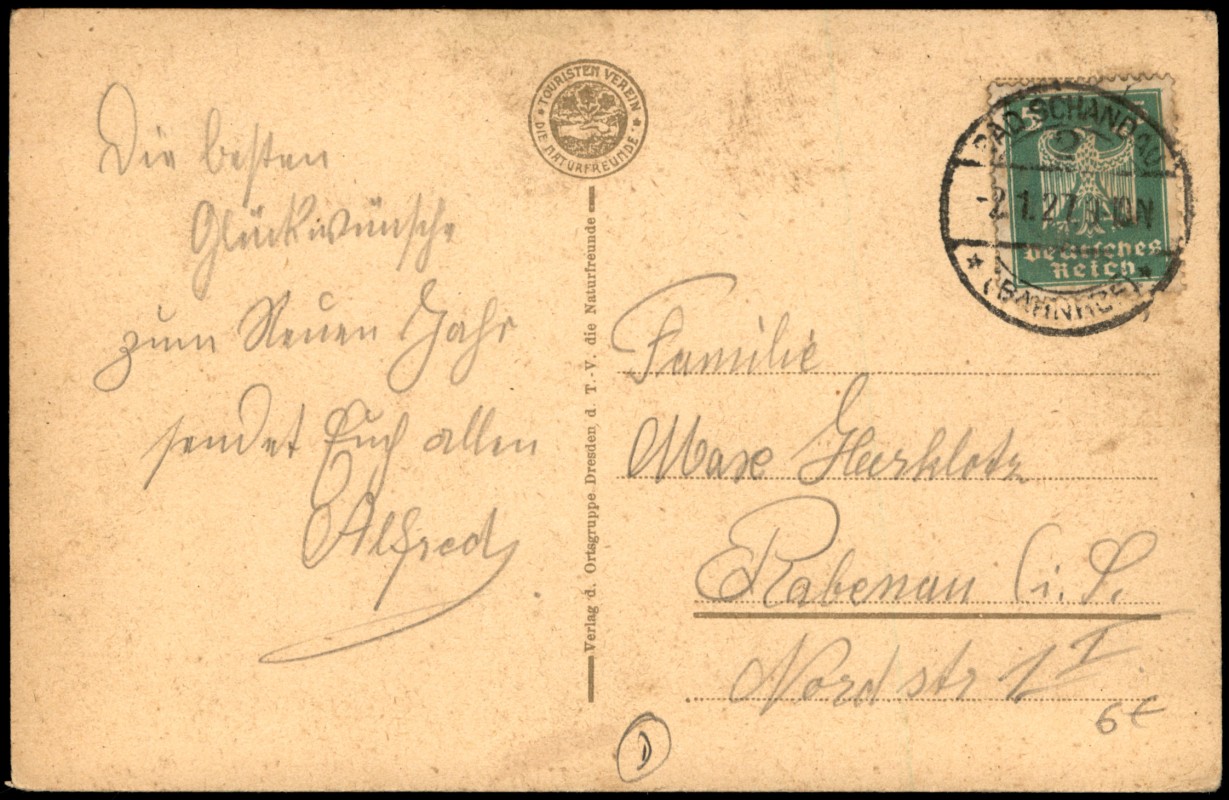 Die besten
Glückwünsche
zum Neuen Jahr
sendet Euch allen
Alfred
TOURISTEN VEREIN
DIE NATURFREUNDE
Verlag d. Ortsgruppe Dresden d. T.-V. die Naturfreunde
5
Deutsches
Reich
BAD SCHANDAU
2
-2.1.27.
(BAHNHOF)
Familie
Max Herklotz
Rabenau i. S.
Nordstr 1 I
6€
D